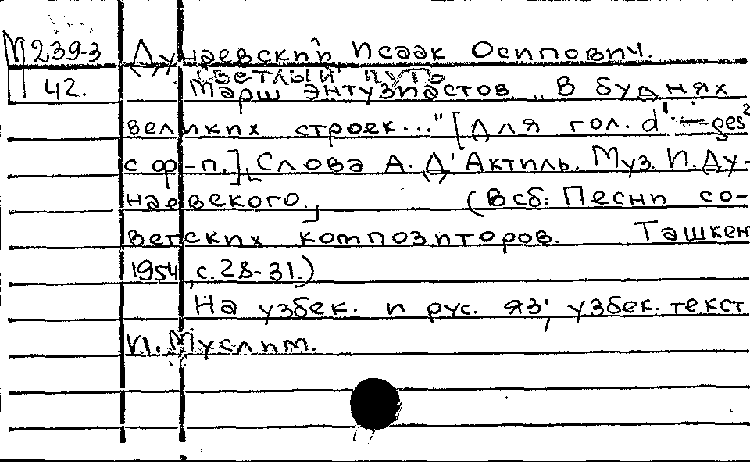 М 239-3 Дунаевский Исаак Осипович.
Светлый путь
42. Марш энтузиастов „В буднях
великих строек..." [Для гол. d¹-ges²
с ф-п.], Слова А. Д'Актиль. Муз. И. Ду-
наевского. (В сб: Песни со-
ветских композиторов. Ташкен
1954, с. 28-31.)
На узбек. и рус. яз, узбек. текст
И. Муслим.